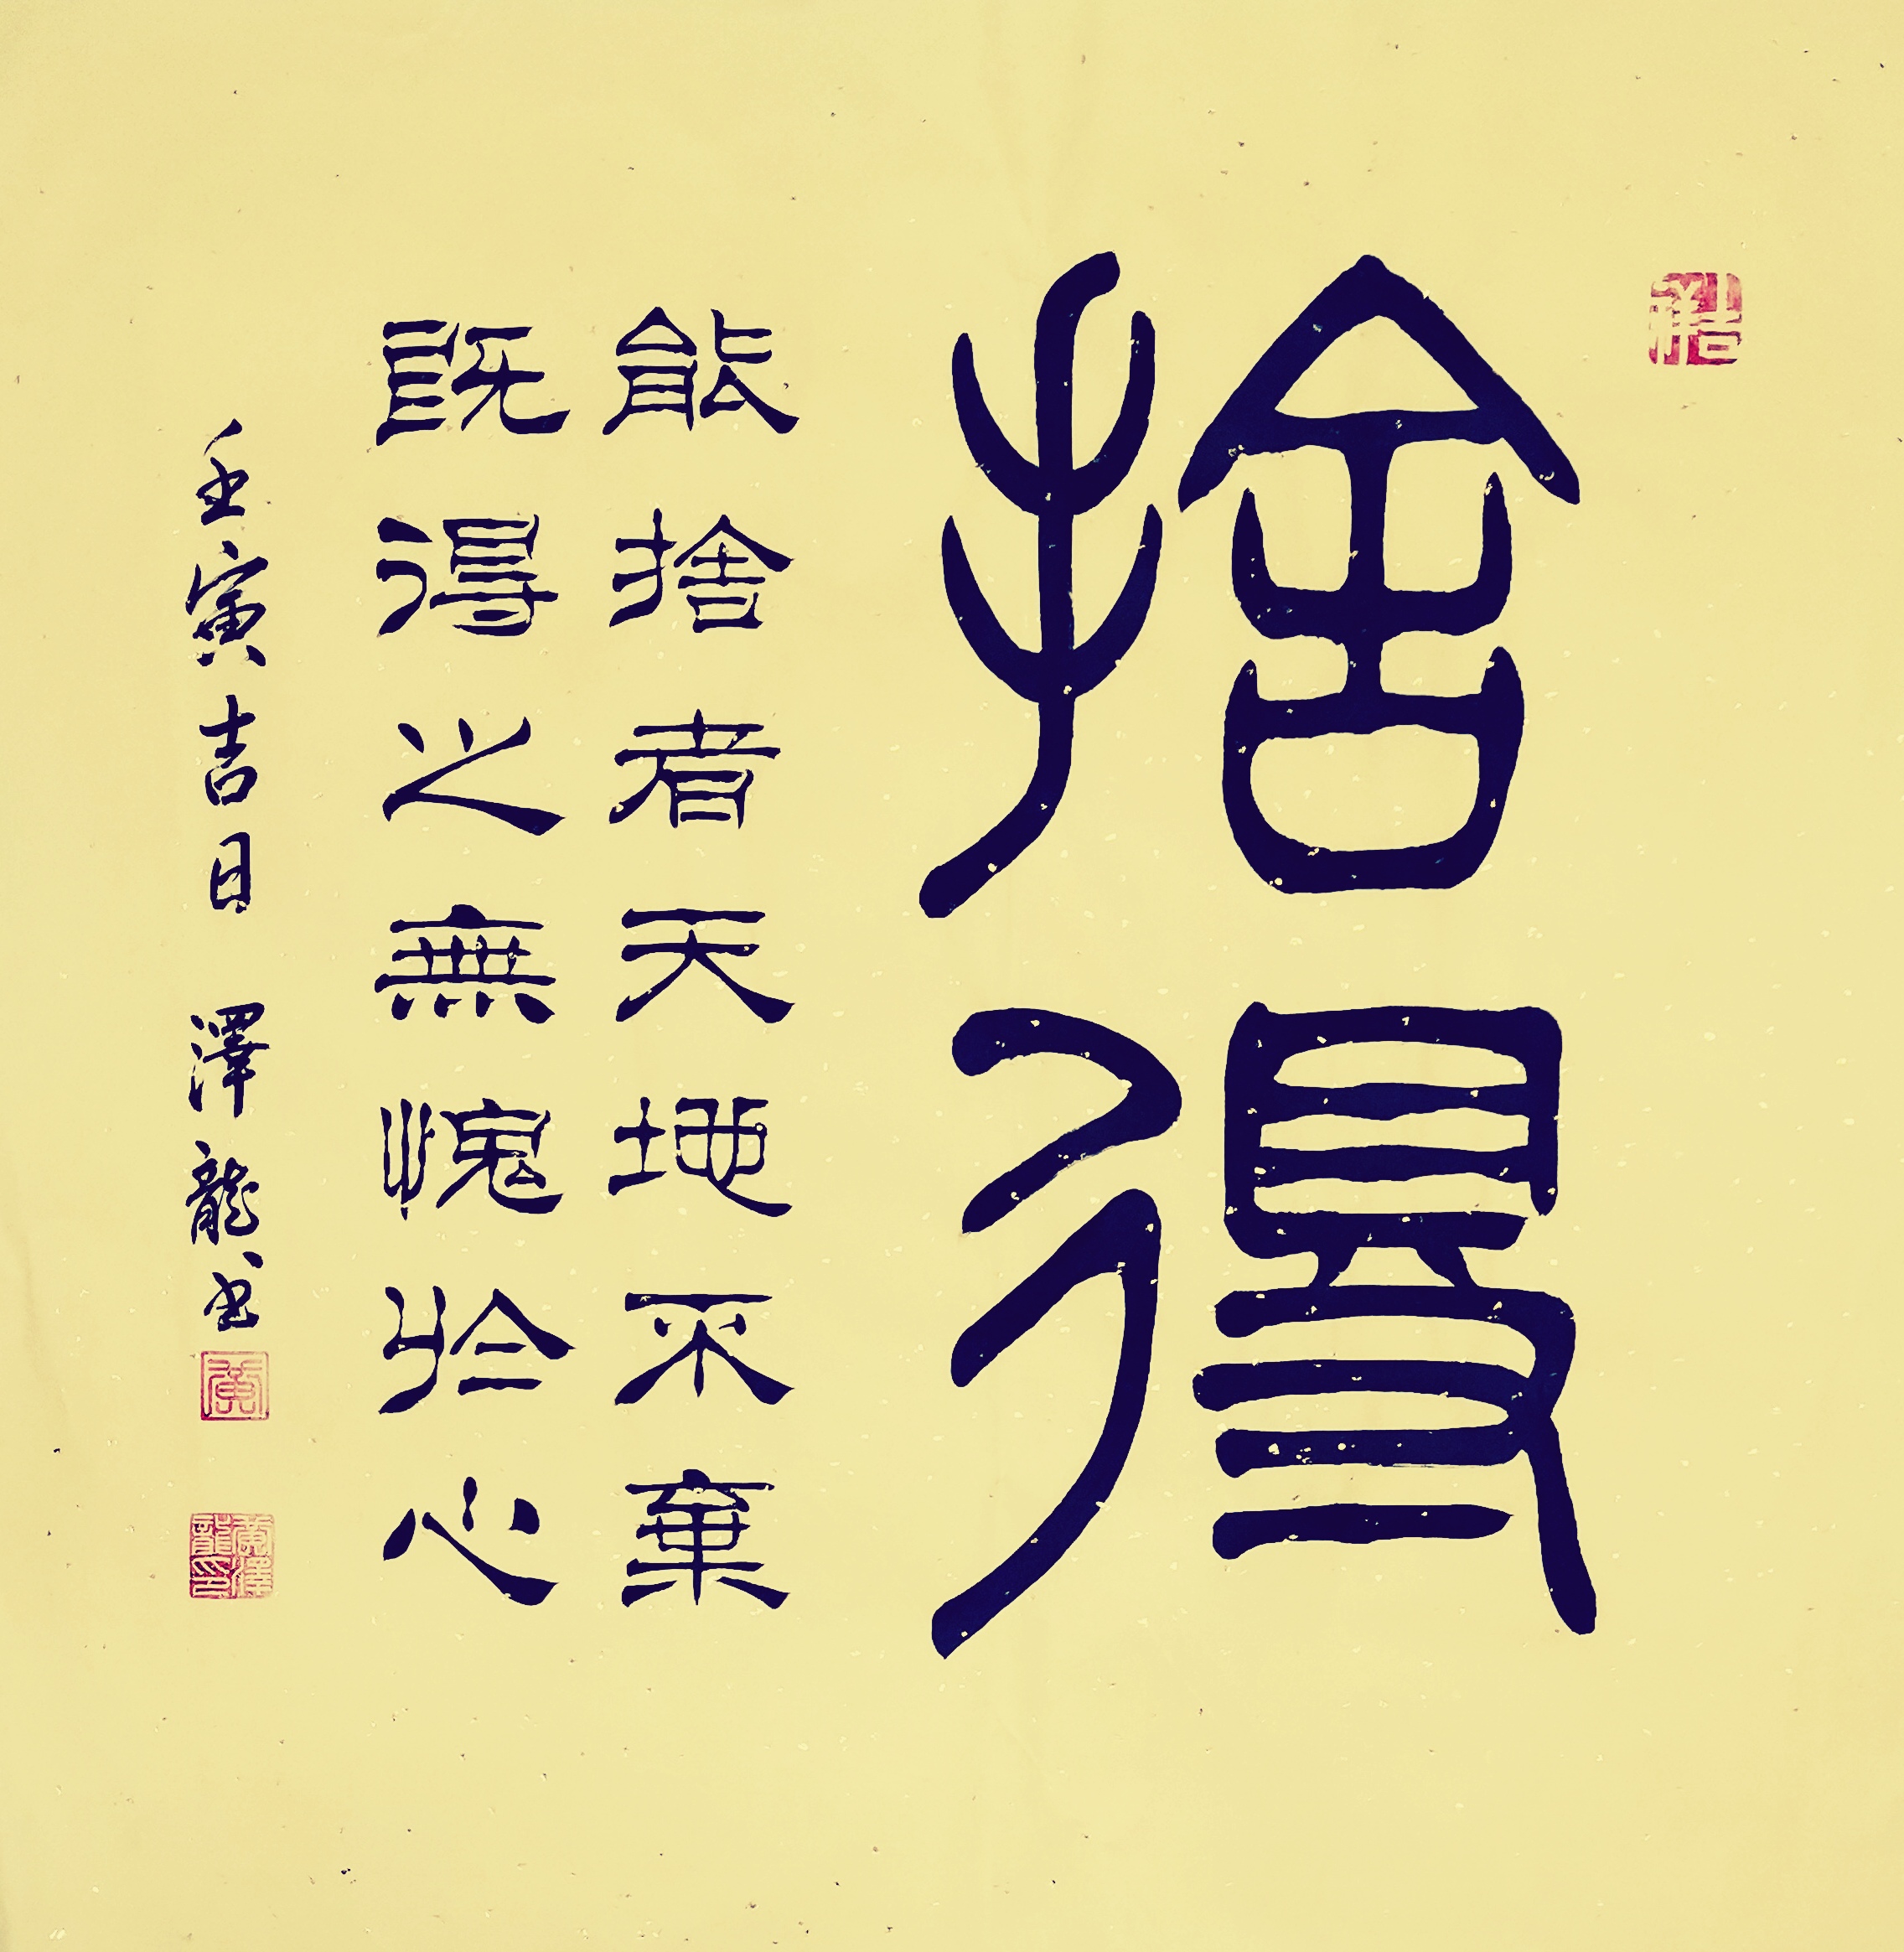 捨得
能捨者天地不棄
既得之無愧於心
壬寅吉日 澤龍書